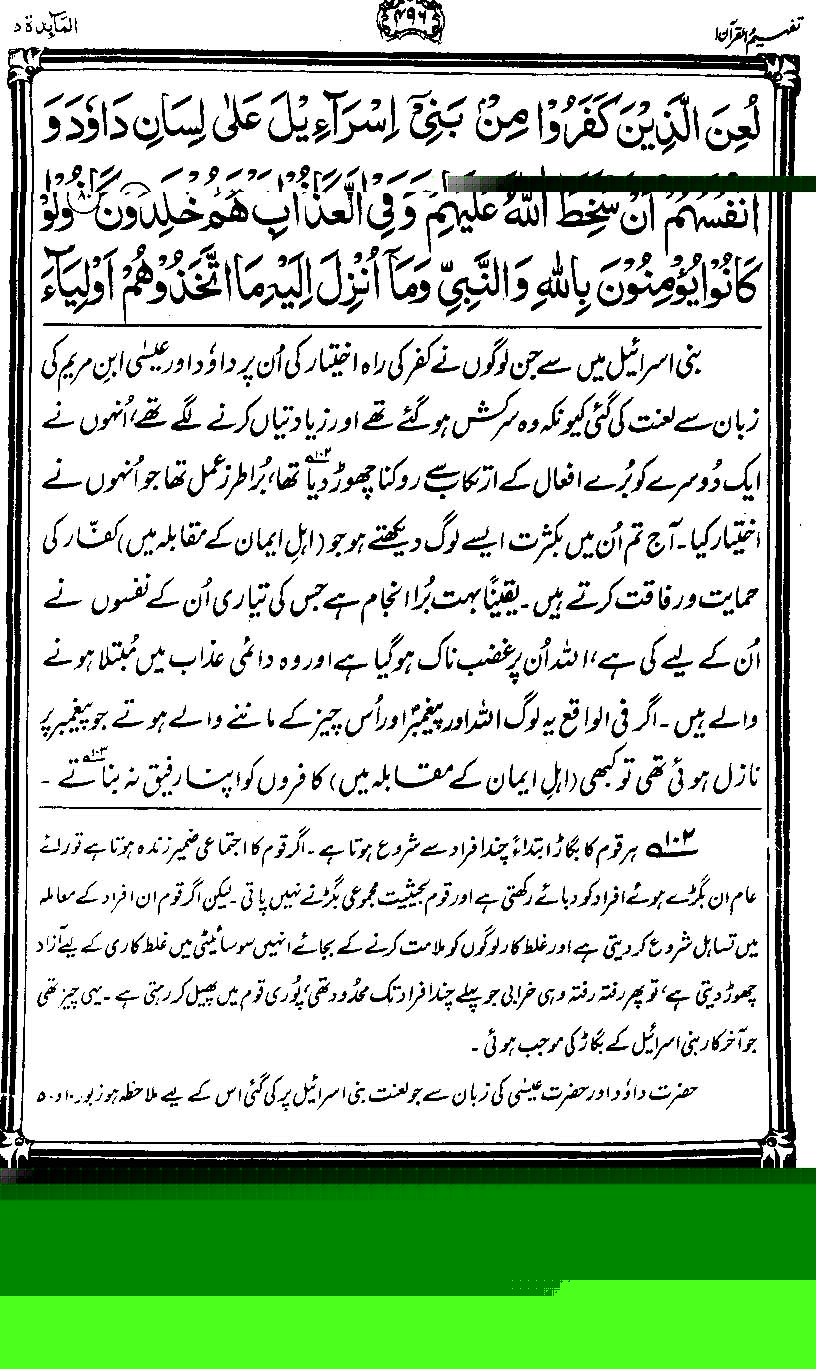 تفہیم القرآن ۱
۴۹۶
المآئدۃ ۵
لُعِنَ الَّذِيْنَ كَفَرُوْا مِنْۢ بَنِيْٓ اِسْرَآءِيْلَ عَلٰى لِسَانِ دَاوٗدَ وَ
اَنْفُسُهُمْ اَنْ سَخِطَ اللّٰهُ عَلَيْهِمْ وَفِي الْعَذَابِ هُمْ خٰلِدُوْنَ ۸۰ وَلَوْ
كَانُوْا يُؤْمِنُوْنَ بِاللّٰهِ وَالنَّبِيِّ وَمَآ اُنْزِلَ اِلَيْهِ مَا اتَّخَذُوْهُمْ اَوْلِيَآءَ
بنی اسرائیل میں سے جن لوگوں نے کفر کی راہ اختیار کی اُن پر داوٗد اور عیسٰی ابنِ مریم کی
زبان سے لعنت کی گئی کیونکہ وہ سرکش ہوگئے تھے اور زیادتیاں کرنے لگے تھے، اُنہوں نے
ایک دُوسرے کو بُرے افعال کے ارتکاب سے روکنا چھوڑ دیا تھا،۱۰۲ بُرا طرزِ عمل تھا جو اُنہوں نے
اختیار کیا۔ آج تم اُن میں بکثرت ایسے لوگ دیکھتے ہو جو (اہلِ ایمان کے مقابلہ میں) کفّار کی
حمایت و رفاقت کرتے ہیں۔ یقیناً بہت بُرا انجام ہے جس کی تیاری اُن کے نفسوں نے
اُن کے لیے کی ہے، اللہ اُن پر غضب ناک ہوگیا ہے اور وہ دائمی عذاب میں مُبتلا ہونے
والے ہیں۔ اگر فی الواقع یہ لوگ اللہ اور پیغمبرؐ اور اُس چیز کے ماننے والے ہوتے جو پیغمبر پر
نازل ہوئی تھی تو کبھی (اہلِ ایمان کے مقابلہ میں) کافروں کو اپنا رفیق نہ بناتے۱۰۳۔
۱۰۲ ہر قوم کا بگاڑ ابتداءً چند افراد سے شروع ہوتا ہے۔ اگر قوم کا اجتماعی ضمیر زندہ ہوتا ہے تو رائے
عام ان بگڑے ہوئے افراد کو دبائے رکھتی ہے اور قوم بحیثیت مجموعی بگڑنے نہیں پاتی۔ لیکن اگر قوم ان افراد کے معاملہ
میں تساہل شروع کر دیتی ہے اور غلط کار لوگوں کو ملامت کرنے کے بجائے انہیں سوسائیٹی میں غلط کاری کے لیے آزاد
چھوڑ دیتی ہے، تو پھر رفتہ رفتہ وہی خرابی جو پہلے چند افراد تک محدُود تھی، پُوری قوم میں پھیل کر رہتی ہے۔ یہی چیز تھی
جو آخر کار بنی اسرائیل کے بگاڑ کی موجب ہوئی۔
حضرت داوٗد اور حضرت عیسٰی کی زبان سے جو لعنت بنی اسرائیل پر کی گئی اس کے لیے ملاحظہ ہو زبور ۱۰ و ۵۰